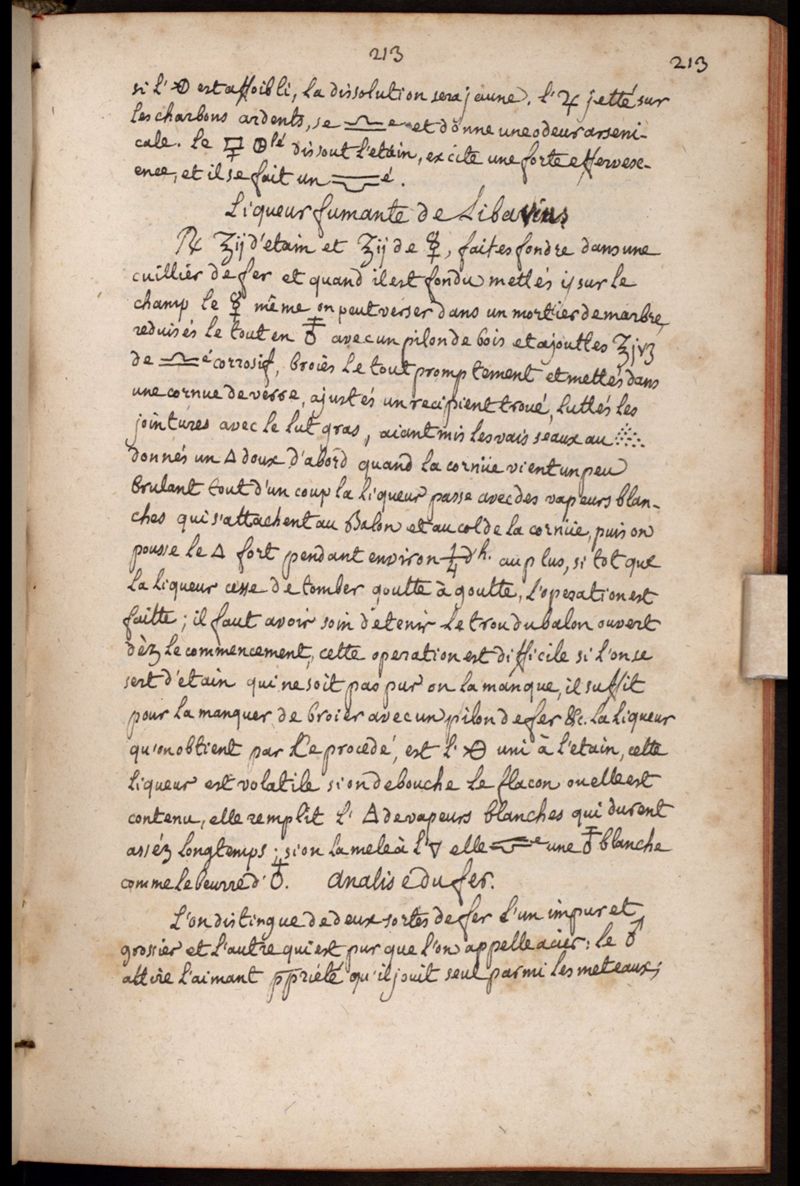 213
213
si l'🜹 est affoibli, la dissolution sera jaune. l'♃ jetté sur
les charbons ardents, se 🝞e et donne une odeur arseni-
cale. le 🜖 🜕lé dissout l'etain, excite une forte effervesc-
ence, et il se fait un 🝟é.
Liqueur fumante de Libavius
℞ ʒij d'etain et ʒij de ☿, faites fondre dans une
cuillier de fer et quand il est fondu mettés ij sur le
champ le ☿ même on peut verser dans un mortier de marbre,
reduisés le tout en ♁ avec un pilon de bois et ajouttes ʒjvʒ
de 🝞é corrosif, broiés le tout promptement et mettés dans
une cornue de verre, ajustés un recipient troué, luttés les
jointures avec le lut gras, aiant mis les vaisseaux au ⁘
donnés un 🜂 doux d'abord quand la cornüe vient un peu
brulant tout d'un coup la liqueur passe avec des vapeurs blan-
ches qui s'attachent au Balon et au col de la cornüe, puis on
pousse le 🜂 fort pendant environ ¼ d'h. au plus, si tot que
la liqueur cesse de tomber goutte à goutte, l'operation est
faitte; il faut avoir soin de tenir le trou du balon ouvert
dèz le commencement, cette operation est difficile si l'on se
sert d'etain qui ne soit pas pur on la manque, il suffit
pour la manquer de broier avec un pilon de fer &c. la liqueur
qu'on obtient par Ce procedé, est l'🜹 uni à l'etain, cette
liqueur est volatile si on debouche le flacon ou elle est
contenu, elle remplit l'🜁 de vapeurs blanches qui durent
asséz longtemps; si on la mele à l'🜄 elle 🝟e une ♁ blanche
comme le beurre d'♁. Analise du fer.
L'on distingue de deux sortes de fer l'un impur et
grossier et l'autre qui est pur que l'on appelle acier: le ♂
attire l'aimant ppriété qu'il jouit seul parmi les meteaux;